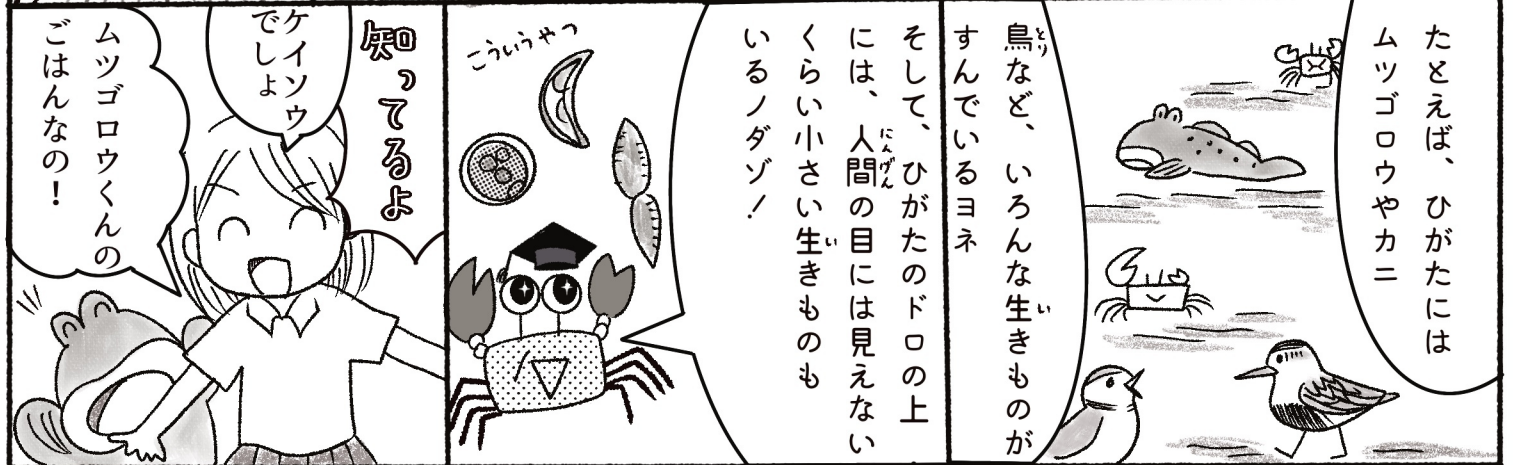 たとえば、ひがたには
ムツゴロウやカニ
鳥など、いろんな生きものが
すんでいるヨネ
そして、ひがたのドロの上
には、人間の目には見えない
くらい小さい生きものも
いるノダゾ！
こういうやつ
知ってるよ
ケイソウ
でしょ
ムツゴロウくんの
ごはんなの！